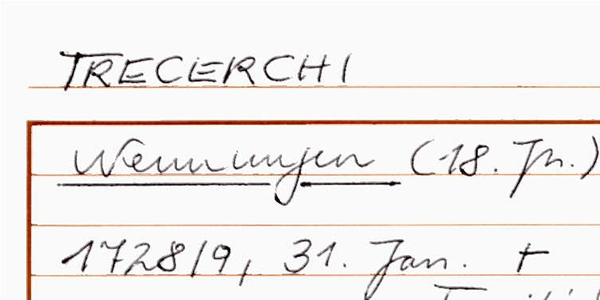 TRECERCHI
Wennungen (18. Jh.)
1728/9, 31. Jan. +